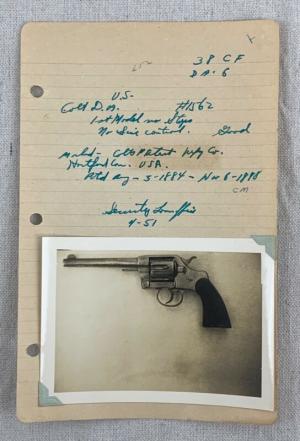 38 CF
DA. 6
U.S.
Colt D.A. #1562
1st Model no Stops
No Serie control. Good
Marked - Colts Patent Mfg Co.
Hartford Con. U.S.A.
Ptd Aug - 5 - 1884 - Nov 6 - 1888
CM
Security
4-51